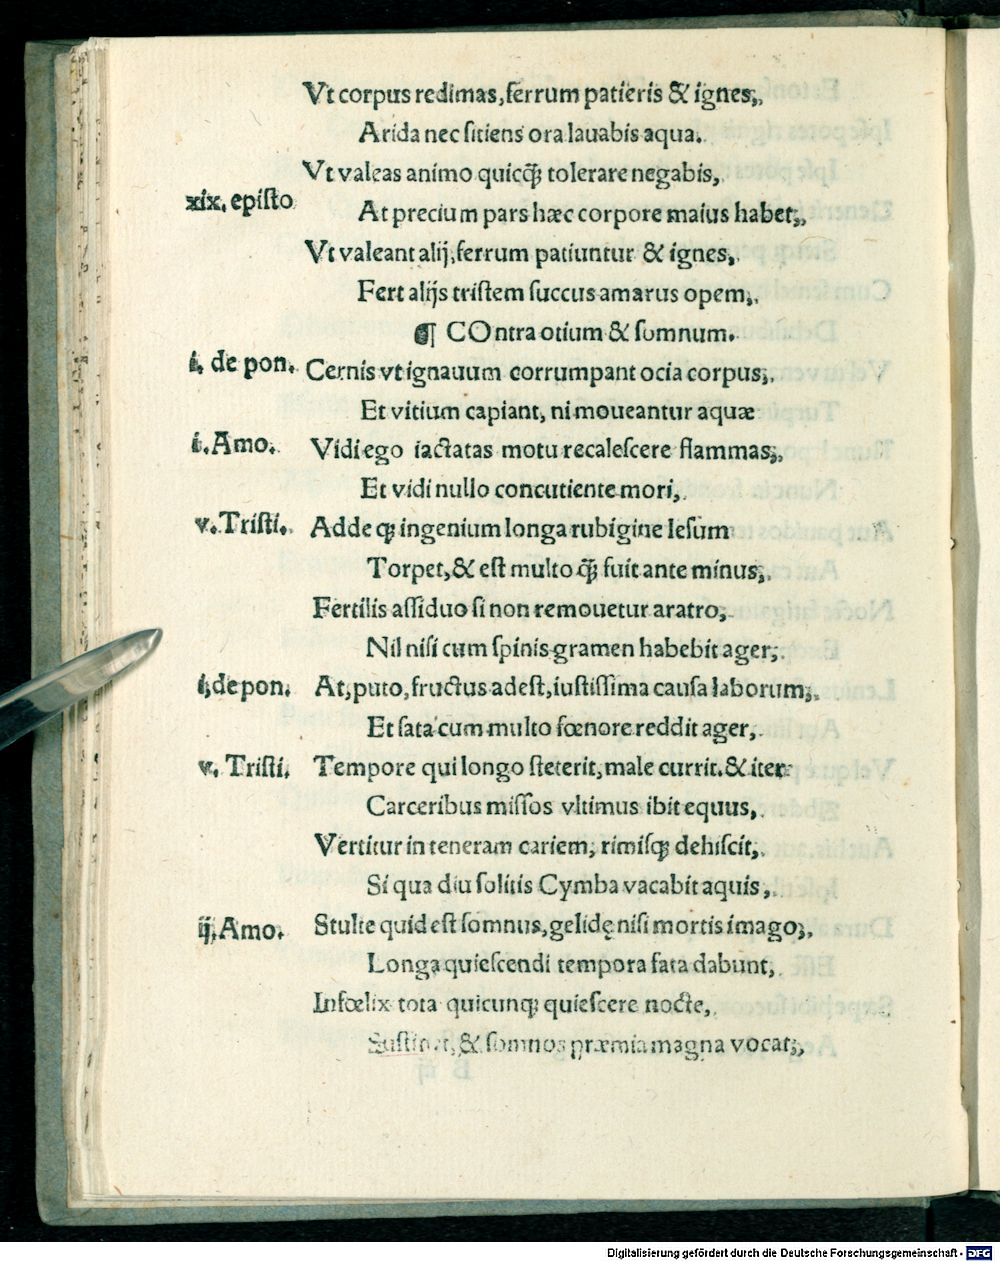 Vt corpus redimas, ferrum patieris & ignes;,
Arida nec sitiens ora lauabis aqua.
Vt valeas animo quicq̃ tolerare negabis,
xix. episto
At precium pars hæc corpore maius habet;,
Vt valeant alij, ferrum patiuntur & ignes,
Fert alijs tristem succus amarus opem;,
¶ COntra otium & somnum.
i. de pon. Cernis vt ignauum corrumpant ocia corpus;,
Et vitium capiant, ni moueantur aquæ
i. Amo. Vidi ego iactatas motu recalescere flammas;,
Et vidi nullo concutiente mori,
v. Tristi. Adde qꝫ ingenium longa rubigine lesum
Torpet, & est multo q̃ fuit ante minus;,
Fertilis assiduo si non remouetur aratro,
Nil nisi cum spinis gramen habebit ager;
i. de pon. At, puto, fructus adest, iustissima causa laborum;,
Et sata cum multo fœnore reddit ager,
v. Tristi. Tempore qui longo steterit, male currit. & iter
Carceribus missos vltimus ibit equus,
Vertitur in teneram cariem, rimisqꝫ dehiscit,
Si qua diu solitis Cymba vacabit aquis,
ij. Amo. Stulte quid est somnus, gelidę nisi mortis imago;,
Longa quiescendi tempora fata dabunt,
Infœlix tota quicunqꝫ quiescere nocte,
Sustinet, & somnos præmia magna vocat;,
Digitalisierung gefördert durch die Deutsche Forschungsgemeinschaft - DFG